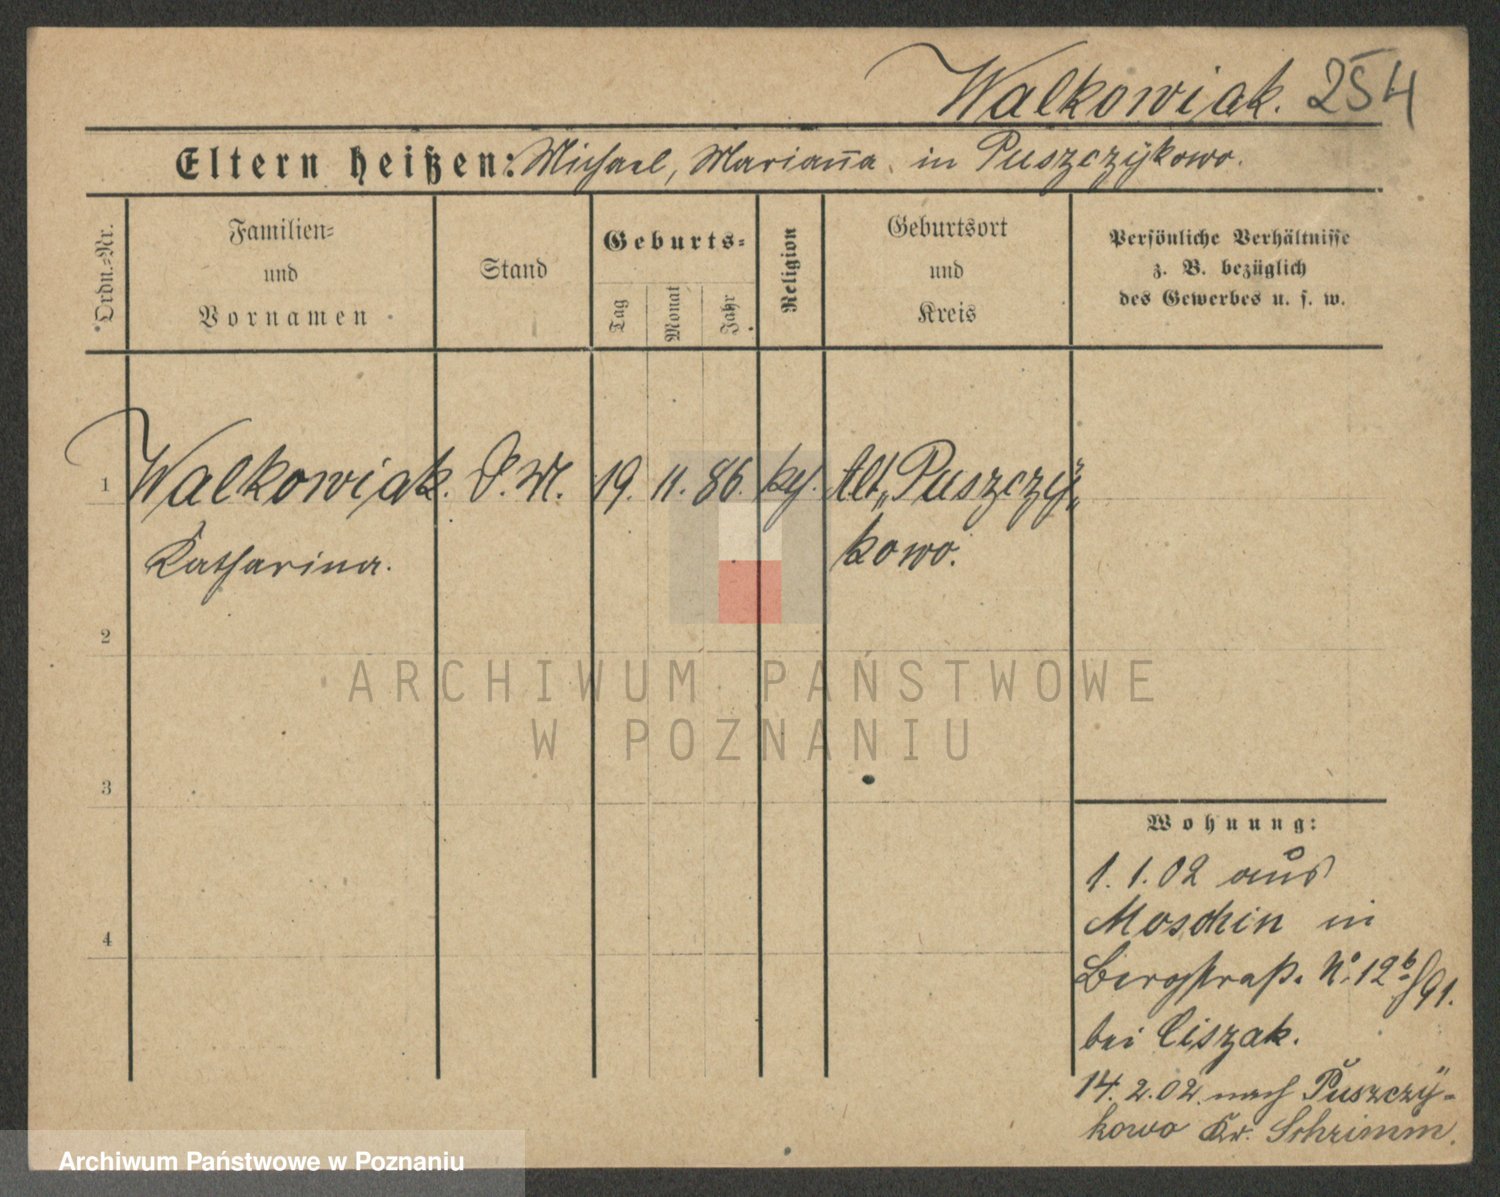 Walkowiak. 254
Eltern heißen: Michael, Marianna in Puszczykowo.
Ordn.-Nr.
Familien-
und
Vornamen
Stand
Geburts-
Tag
Monat
Jahr
Religion
Geburtsort
und
Kreis
Persönliche Verhältnisse
z. B. bezüglich
des Gewerbes u. s. w.
1 Walkowiak. D. M. 19. 11. 86. kth. Alt Puszczy-
Katharina. kowo.
2
3
4
ARCHIWUM PAŃSTWOWE
W POZNANIU
Wohnung:
1. 1. 02 aus
Moschin in
Bergstraß. No. 12 b/91.
bei Ciszak.
14. 2. 02 nach Puszczy-
kowo Kr. Schrimm.
Archiwum Państwowe w Poznaniu